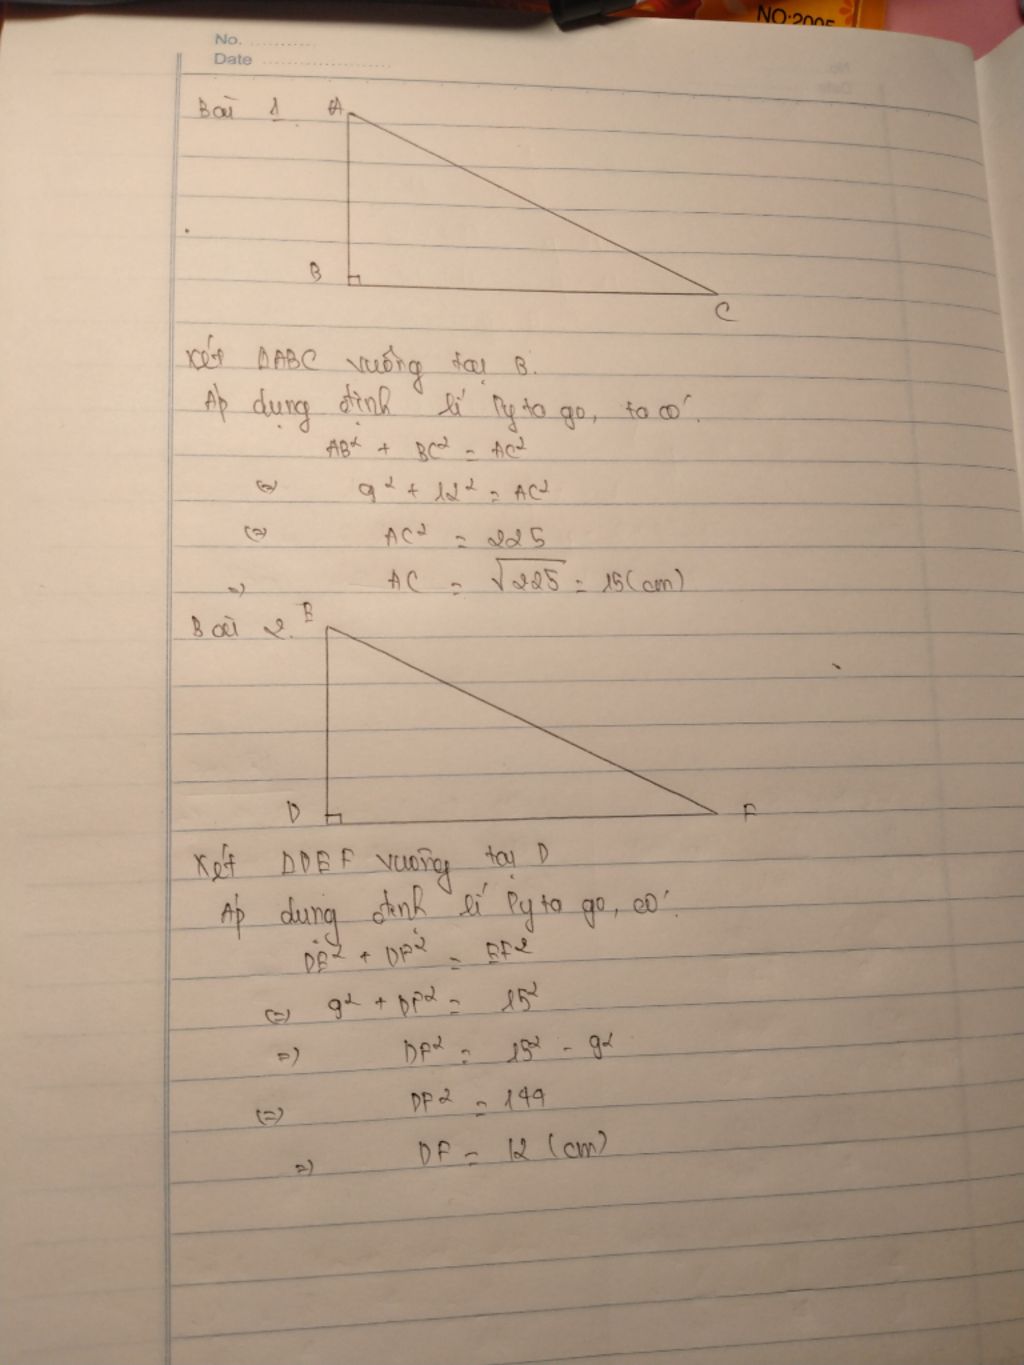 NO:2005
No. ............
Date ......................
Bài 1. A
B
C
Xét ΔABC vuông tại B.
Áp dụng định lí Pytago, ta có:
AB² + BC² = AC²
(=) 9² + 12² = AC²
(=) AC² = 225
=) AC = √225 = 15(cm)
Bài 2. E
D F
Xét ΔDEF vuông tại D
Áp dụng định lí Pytago, có:
DE² + DF² = EF²
(=) 9² + DF² = 15²
=) DF² = 15² - 9²
(=) DF² = 144
=) DF = 12 (cm)